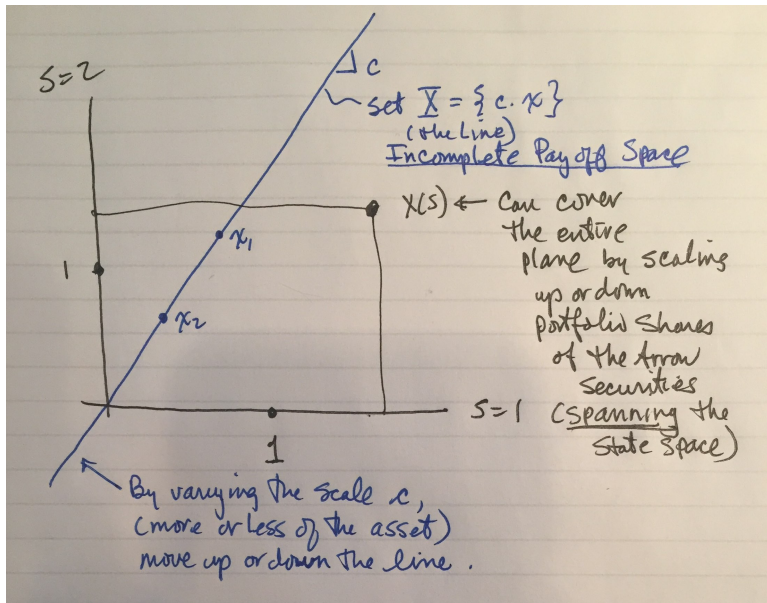 S=2
Δc
set X = {c·x}
(the Line)
Incomplete Payoff Space
X(s) ← Can cover
the entire
plane by scaling
up or down
portfolio shares
of the Arrow
securities
(spanning the
state space)
x₁
1
x₂
S=1
1
By varying the scale c,
(more or less of the asset)
move up or down the line.